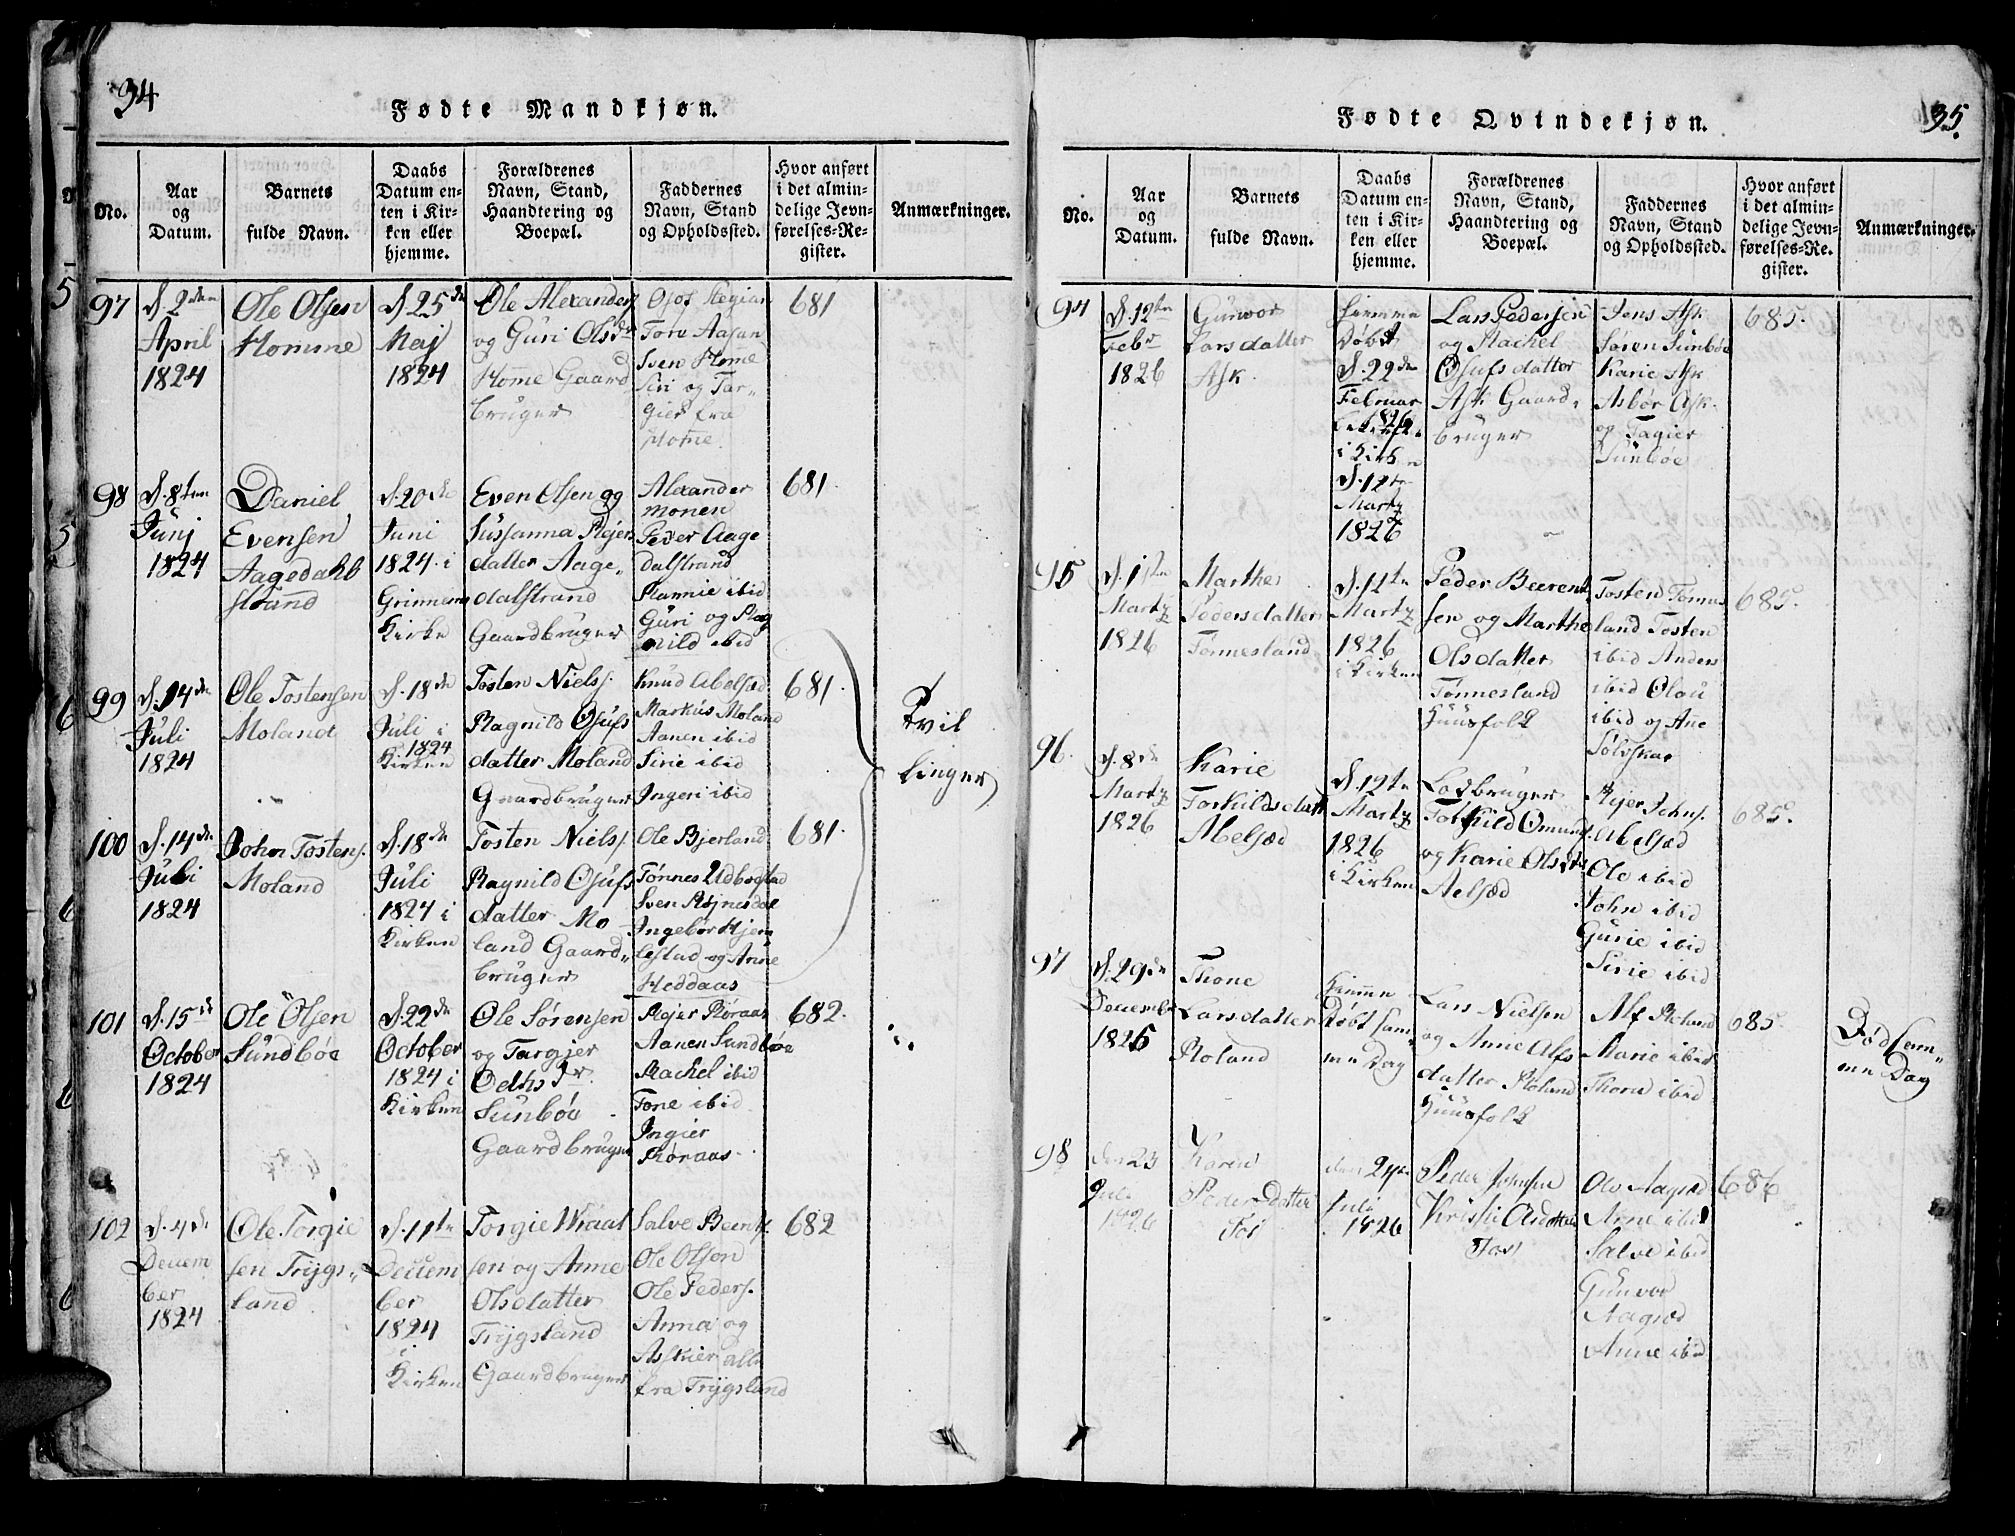 34
Fødte Mandkjøn.
No.
Aar
og
Datum.
Barnets
fulde Navn.
Daabs
Datum en-
ten i Kir-
ken eller
hjemme.
Forældrenes
Navn, Stand,
Haandtering og
Boepæl.
Faddernes
Navn, Stand
og Opholdssted.
Hvor anført
i det almin-
delige Jevn-
førelses-Re-
gister.
Anmærkninger.
97
d. 2den
April
1824
Ole Olsen
Homme
d. 25de
Maj
1824
Ole Alexanders
og Guri Olsdr
Home Gaard
bruger
Tore Aasan
Sven Home
Siri og Tar-
gier fra
Home.
681
98
d. 8ten
Junj
1824
Daniel
Evensen
Aagedahl
strand
d. 20de
Juni
1824 i
Grinnems
Kirke
Even Olsen og
Susanna Rejers
datter Aage-
dalstrand
Gaardbruger
Alexander
monen
Peder Aage
dalstrand
Rannie ibid
Guri og Rag
nild ibid
681.
99
d. 14de
Juli
1824
Ole Tostensen
Moland
d. 18de
Juli i
1824
Kirken
Tosten Niels.
Ragnild Osufs
datter Moland
Gaardbruger
Knud Abelsæd
Markus Moland
Aanen ibid
Sirie ibid
Ingeri ibid
681.
Tvil
linger
100
d. 14de
Juli
1824
John Tostens.
Moland
d. 18de
Juli
1824 i
Kirken
Tosten Niels.
Ragnild Osufs
datter Mo-
land Gaard-
bruger
Ole Bjerland
Tønnes Udbogstad
Sven Rejnesdal
Ingebor Hjem
lestad og Anne
Heddaas
681.
101
d. 15de
October
1824
Ole Olsen
Sundbøe
d. 22de
October
1824 i
Kirken
Ole Sørensen
og Targjer
Oelhs dr.
Sunbøe
Gaardbruger
Rejer Røraas
Aanen Sundbøe
Rachel ibid
Tone ibid
Ingier
Røraas
682.
102
d. 4de
Decem
ber
1824
Ole Torgie
sen Trygs-
land
d. 11te
Decem
ber
1824
i
Kirken
Torgie Wraal
sen og Anne
Olsdatter
Trygsland
Gaardbruger
Salve Beents.
Ole Olsen
Ole Peders.
Anna og
Asskier alle
fra Trygsland
682
35.
Fødte Qvindekjøn.
No.
Aar
og
Datum.
Barnets
fulde Navn.
Daabs
Datum en-
ten i Kir-
ken eller
hjemme.
Forældrenes
Navn, Stand,
Haandtering og
Boepæl.
Faddernes
Navn, Stand
og Opholdssted.
Hvor anført
i det almin-
delige Jevn-
førelses-Re-
gister.
Anmærkninger.
94
d. 12te
Febr
1826
Gunvor
Larsdatter
Ask
hiemme
Døbt
d. 22de
Februar
1826
i Kirken
d. 12te
Martz
1826
Lars Pedersen
og Rachel
Osufsdatter
Ask Gaard-
bruger
Jens Ask
Søren Sunbøe
Karie Ask
Asbør Ask
og Tagier
Sunbøe
685.
95
d. 1ste
Martz
1826
Marthe
Pedersdatter
Tønnesland
d. 12te
Martz
1826
i Kirken
Peder Beerent
sen og Marthe
Olsdatter
Tønnesland
Huusfolk
Tosten Tønnes
land Tosten
ibid Anders
ibid Olou
ibid og Ane
Sølvskar
685.
96.
d. 8de
Martz
1826
Karie
Torkildsdatt
Abelsæd
d. 12te
Martz
1826
i Kirken
Lodbruger
Torkild Omunds.
og Karie Olsdt
Aelsæd
Rejer Johns.
Abelsæd
Ole ibid
John ibid
Gurie ibid
Sirie ibid
685.
97
d. 29de
Decembr
1825
Thone
Larsdatter
Roland
hiemme
Døbt sam-
me Dag
Lars Nielsen
og Anne Alfs
datter Roland
Huusfolk
Alf Roland
Marie ibid
Thore ibid
685.
Død sam-
me Dag
98
den 23
Juli
1826
Karen
Pedersdatter
den 24de
Juli
1826
Peder Jensen
Ole Aagsæd
Anne ibid
Salve ibid
Gunvor
Aagsæd
Anne ibid
686